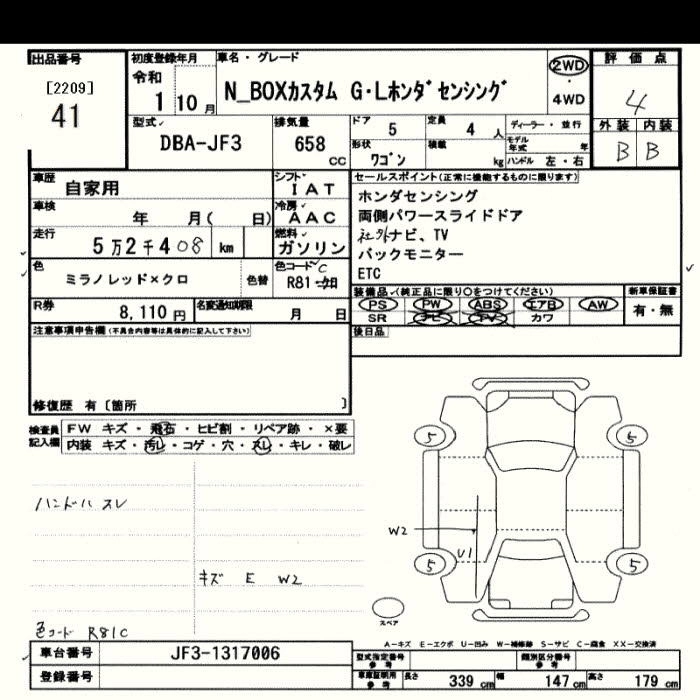 出品番号
[2209]
41
初度登録年月
令和
1 10 月
車名・グレード
N_BOXカスタム G・Lホンダセンシング
2WD
・
4WD
評価点
4
外装 内装
B B
型式
DBA-JF3
排気量
658 cc
ドア 5
定員 4 人
形状 ワゴン
積載 kg
ディーラー・並行
モデル年式 年
ハンドル 左・右
車歴 自家用
車検 年 月( 日)
走行 5万2千408 km
色 ミラノレッド×クロ 色替
シフト IAT
冷房 AAC
燃料 ガソリン
色コード C
R81
セールスポイント(正常に機能するものに限ります)
ホンダセンシング
両側パワースライドドア
社外ナビ、TV
バックモニター
ETC
R券 8,110 円
名変通知期限 月 日
装備品(純正品に限り○をつけてください)
PS PW ABS エアB AW
SR ナビ TV カワ
新車保証書
有・無
後日品
注意事項申告欄(不具合内容等は具体的に記入して下さい)
修復歴 有〔箇所 〕
検査員記入欄
FW キズ・飛石・ヒビ割・リペア跡・×要
内装 キズ・汚レ・コゲ・穴・スレ・キレ・破レ
ハンドル スレ
キズ E W2
色コード R81C
5 5
W2
U1
5 5
スペア
A-キズ E-エクボ U-凹み W-補修跡 S-サビ C-腐食 XX-交換済
車台番号 JF3-1317006
登録番号
型式指定番号 参考
類別区分番号 参考
車庫証明用 参考
長さ 339 cm 幅 147 cm 高さ 179 cm